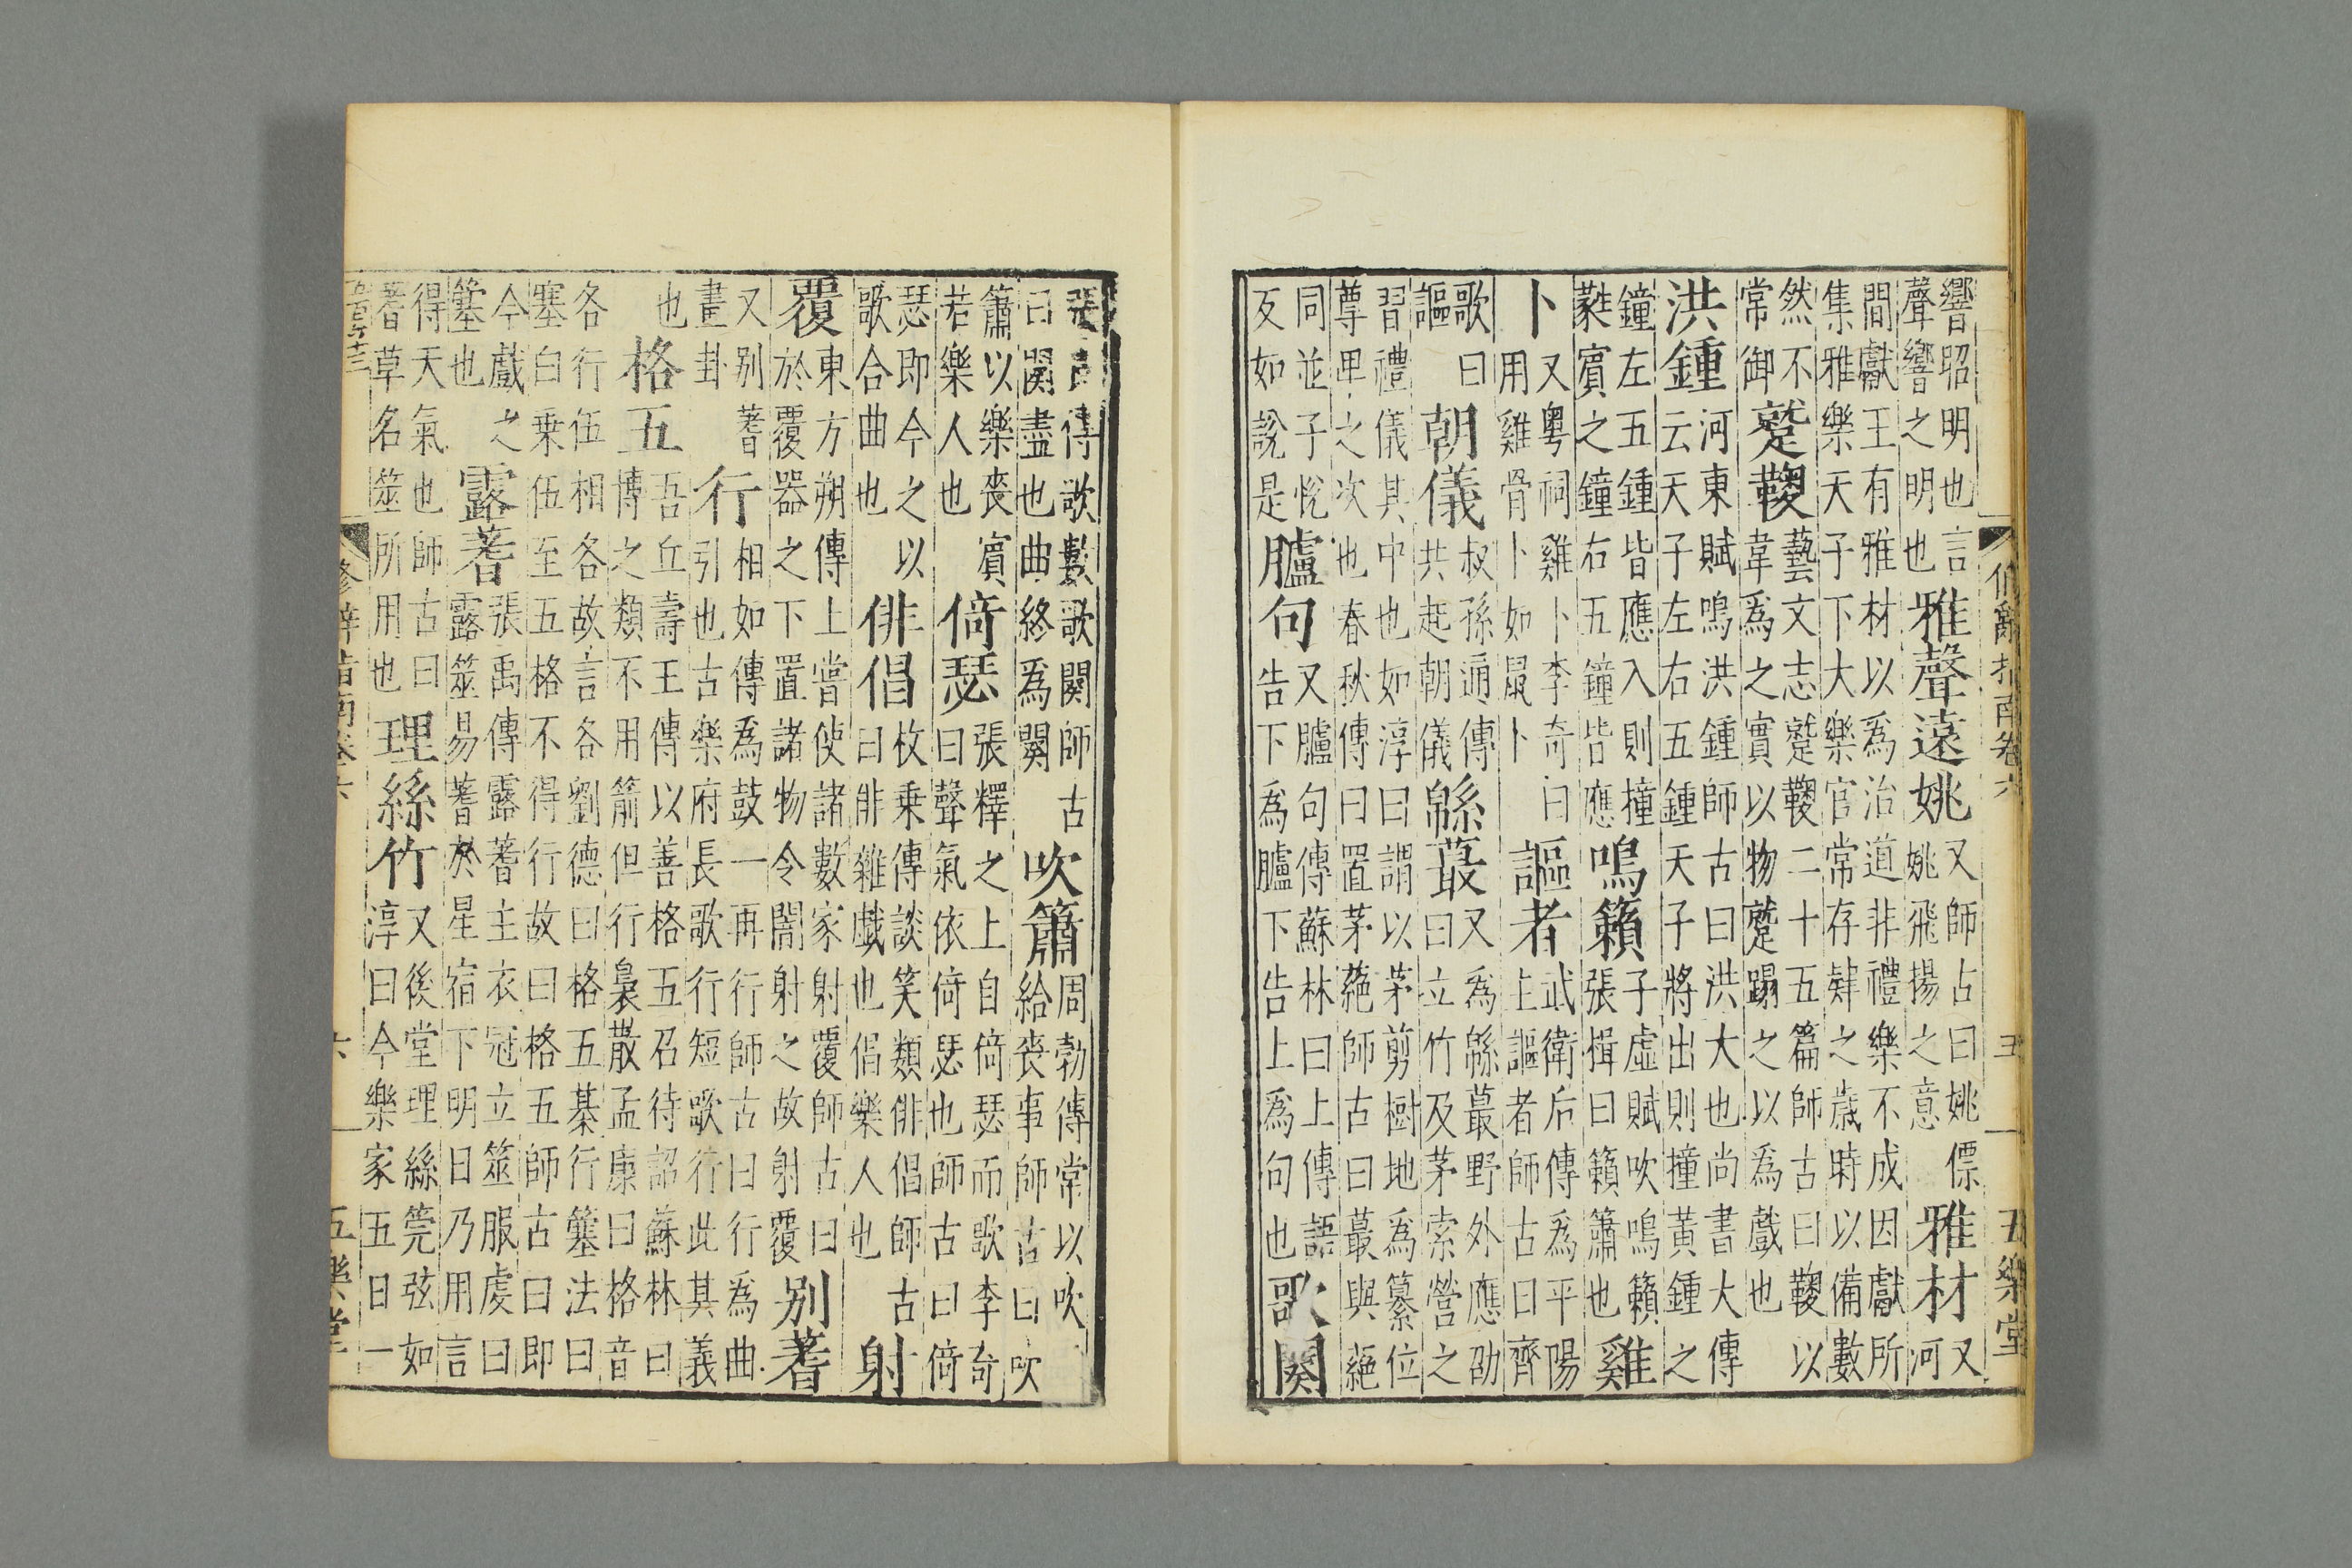 響昭明也言
聲響之明也
雅聲遠姚
又師古曰姚僄
姚飛揚之意
雅材
又
河
間獻王有雅材以為治道非禮樂不成因獻所
集雅樂天子下大樂官常存肄之歲時以備數
然不
常御
蹵鞠
藝文志蹵鞠二十五篇師古曰鞠以
韋為之實以物蹵蹋之以為戲也
洪鍾
河東賦鳴洪鍾師古曰洪大也尚書大傳
云天子左右五鍾天子將出則撞黃鍾之
鐘左五鍾皆應入則撞
蕤賓之鐘右五鐘皆應
鳴籟
子虛賦吹鳴籟
張揖曰籟簫也
雞
卜
又粵祠雞卜李奇曰
用雞骨卜如鼠卜
謳者
武衛后傳為平陽
上謳者師古曰齊
歌曰
謳
朝儀
叔孫通傳
共起朝儀
緜蕞
又為緜蕞野外應劭
曰立竹及茅索營之
習禮儀其中也如淳曰謂以茅剪樹地為纂位
尊卑之次也春秋傳曰置茅蕝師古曰蕞與蕝
同並子悅
反如說是
臚句
又臚句傳蘇林曰上傳語
告下為臚下告上為句也
歌闋
修辭指南卷六
五
五樂堂
傳歌數歌闋師古
曰闋盡也曲終為闋
吹簫
周勃傳常以吹
給喪事師古曰吹
簫以樂喪賓
若樂人也
倚瑟
張釋之上自倚瑟而歌李奇
曰聲氣依倚瑟也師古曰倚
瑟即今之以
歌合曲也
俳倡
枚乘傳談笑類俳倡師古
曰俳雜戲也倡樂人也
射
覆
東方朔傳上嘗使諸數家射覆師古曰
於覆器之下置諸物令闇射之故射覆
別蓍
又別蓍
畫卦
行
相如傳為鼓一再行師古曰行為曲
引也古樂府長歌行短歌行此其義
也
格五
吾丘壽王傳以善格五召待詔蘇林曰
博之類不用箭但行梟散孟康曰格音
各行伍相各故言各劉德曰格五棊行簺法曰
塞白乘伍至五格不得行故曰格五師古曰即
今戲之
簺也
露蓍
張禹傳露蓍主衣冠立筮服虔曰
露筮易蓍於星宿下明日乃用言
得天氣也師古曰
蓍草名筮所用也
理絲竹
又後堂理絲筦弦如
淳曰今樂家五日一
修辭指南卷六
六
五樂堂